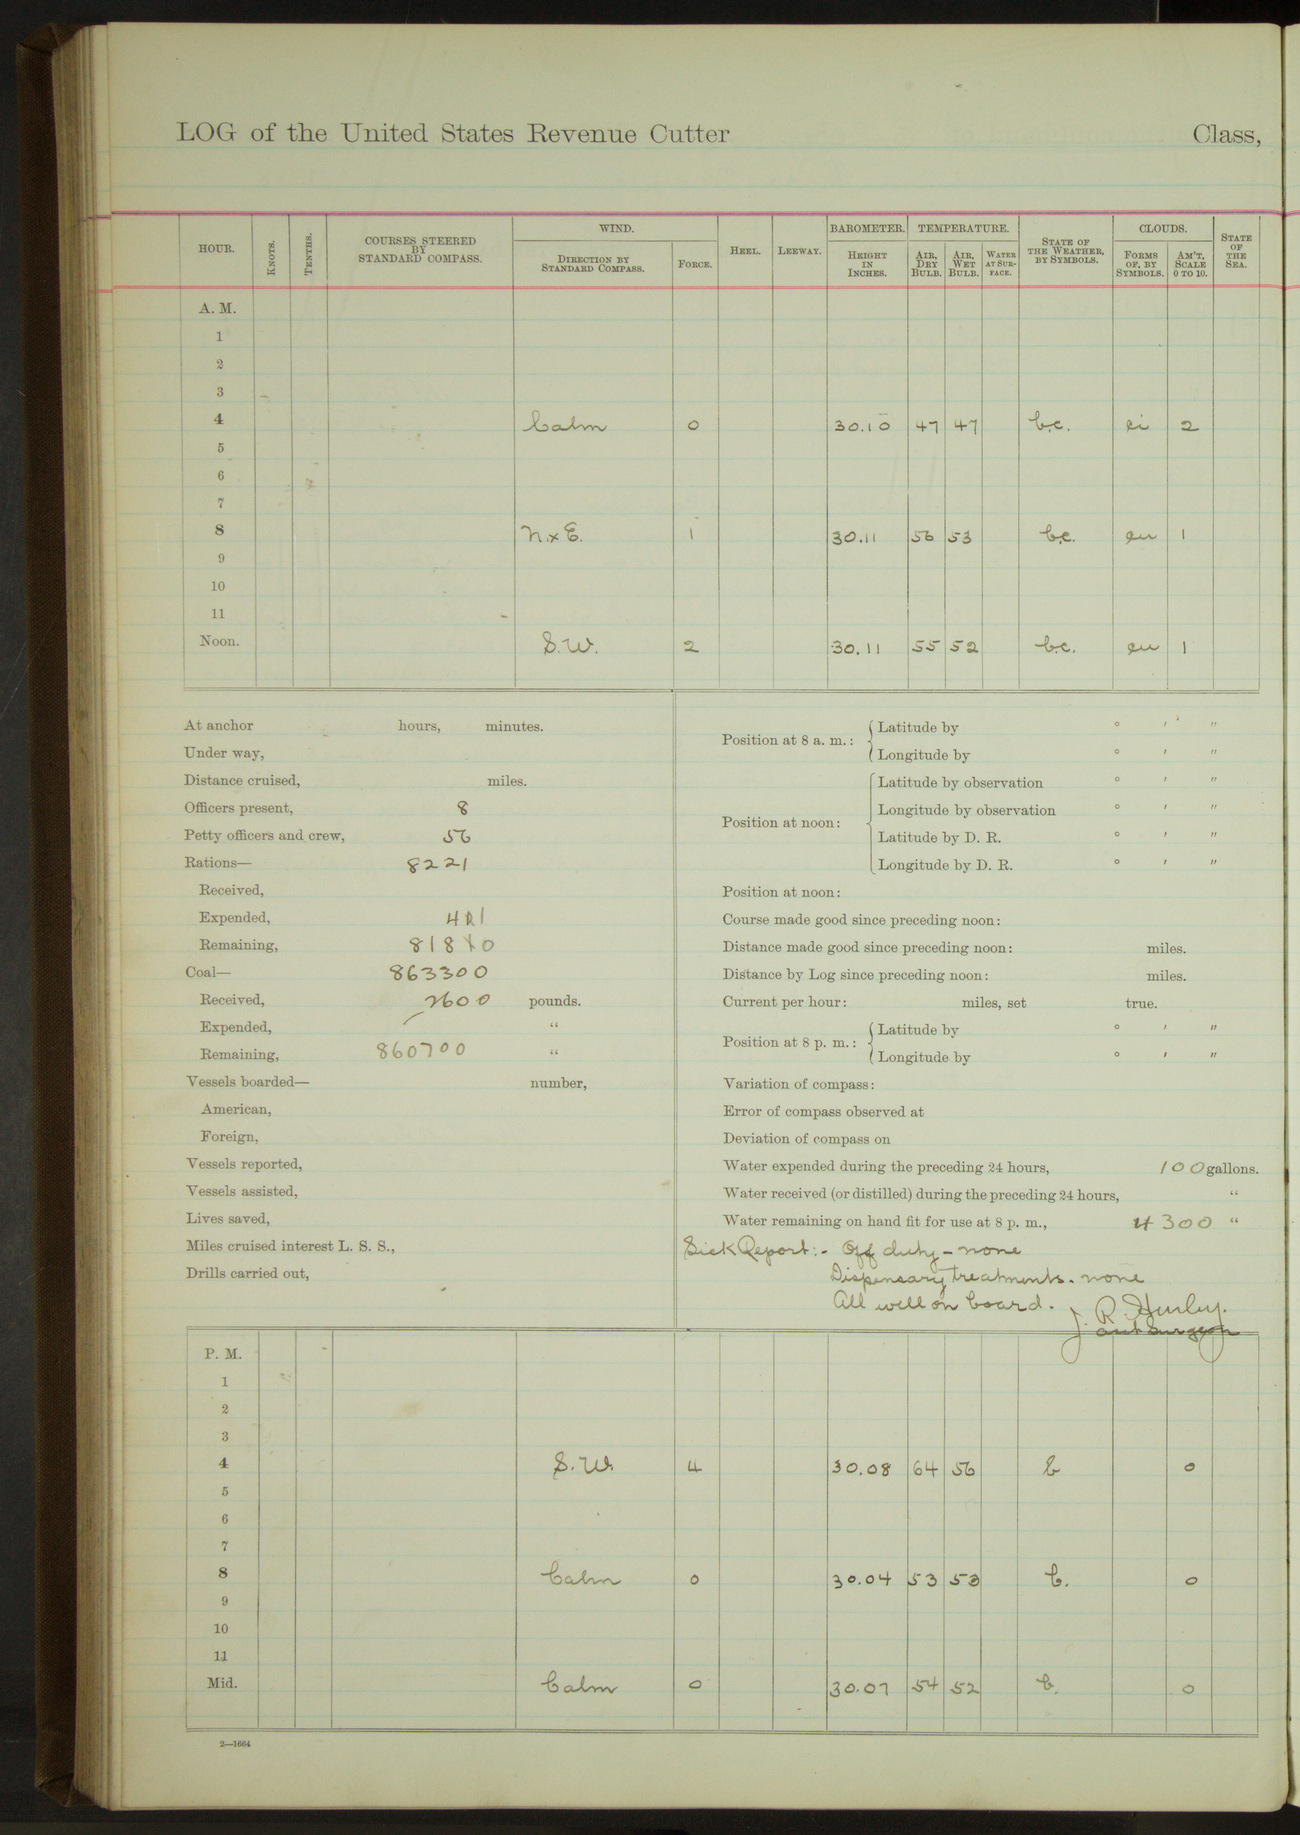 LOG of the United States Revenue Cutter Class,
HOUR. KNOTS. TENTHS. COURSES STEERED BY STANDARD COMPASS. WIND. DIRECTION BY STANDARD COMPASS. FORCE. HEEL. LEEWAY. BAROMETER. HEIGHT IN INCHES. TEMPERATURE. AIR, DRY BULB. AIR, WET BULB. WATER AT SURFACE. STATE OF THE WEATHER, BY SYMBOLS. CLOUDS. FORMS OF, BY SYMBOLS. AM'T, SCALE 0 TO 10. STATE OF THE SEA.
A. M.
1
2
3
4 Calm 0 30.10 47 47 b.c. ci 2
5
6
7
8 N.xE. 1 30.11 56 53 b.c. cu 1
9
10
11
Noon. S.W. 2 30.11 55 52 b.c. cu 1
At anchor hours, minutes.
Under way,
Distance cruised, miles.
Officers present, 8
Petty officers and crew, 56
Rations— 8221
Received,
Expended, 41
Remaining, 8180
Coal— 863300
Received, pounds.
2600
Expended, "
Remaining, 860700 "
Vessels boarded— number,
American,
Foreign,
Vessels reported,
Vessels assisted,
Lives saved,
Miles cruised interest L. S. S.,
Drills carried out,
Position at 8 a. m.: Latitude by ° ′ ″
Longitude by ° ′ ″
Position at noon: Latitude by observation ° ′ ″
Longitude by observation ° ′ ″
Latitude by D. R. ° ′ ″
Longitude by D. R. ° ′ ″
Position at noon:
Course made good since preceding noon:
Distance made good since preceding noon: miles.
Distance by Log since preceding noon: miles.
Current per hour: miles, set true.
Position at 8 p. m.: Latitude by ° ′ ″
Longitude by ° ′ ″
Variation of compass:
Error of compass observed at
Deviation of compass on
Water expended during the preceding 24 hours, 100 gallons.
Water received (or distilled) during the preceding 24 hours, "
Water remaining on hand fit for use at 8 p. m., 4300 "
Sick Report:- Off duty - none
Dispensary treatments. none
All well on board.
J. R. Hurley.
Surgeon
P. M.
1
2
3
4 S.W. 4 30.08 64 56 b 0
5
6
7
8 Calm 0 30.04 53 50 b. 0
9
10
11
Mid. Calm 0 30.07 54 52 b. 0
2—1664